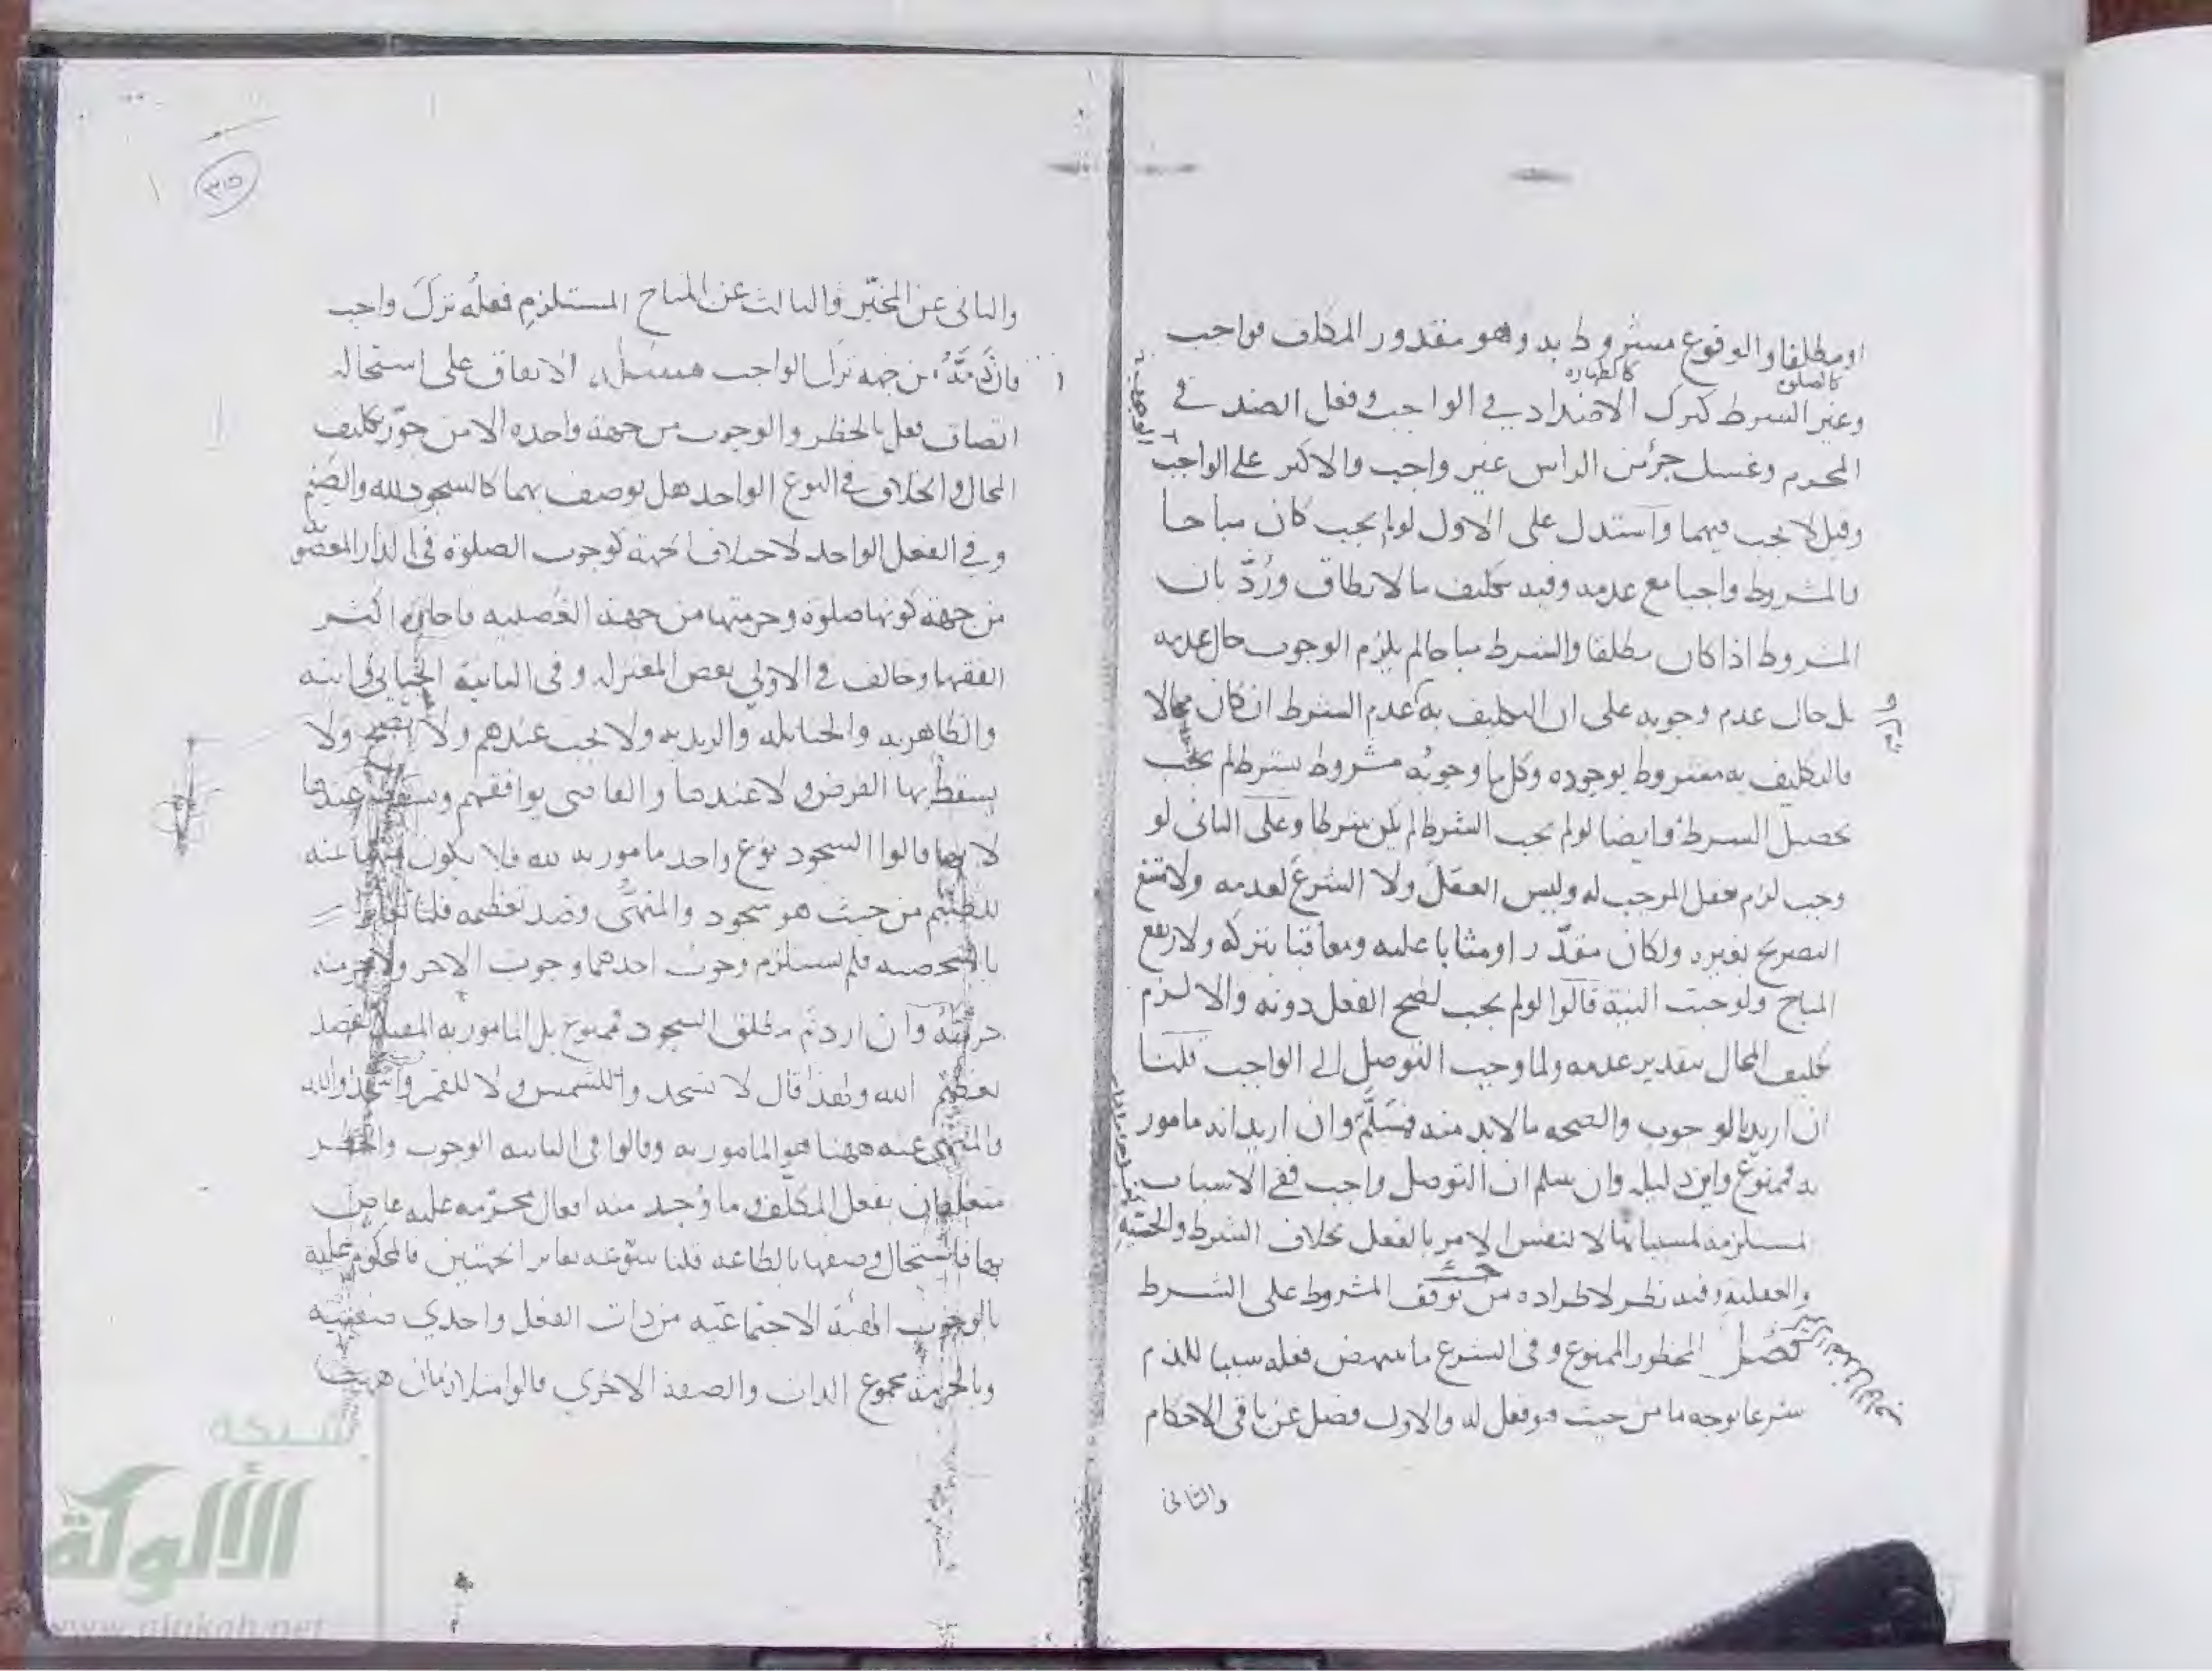 او مطلقا والوقوع مشروط به وهو مقدور المكلف فواجب
كالصلوة كالطهارة
وغير الشرط كترك الاضداد في الواجب وفعل الضد في
المحرم وغسل جزء من الراس غير واجب والاكثر على الواجب
وقيل لا يجب فيهما واستدل على الاول لو لم يجب كان مباحا
فالمشروط واجبا مع عدمه وفيه تكليف ما لا يطاق ورُدّ بان
المشروط اذا كان مطلقا والشرط مباحا لم يلزم الوجوب حال عدمه
بل حال عدم وجوبه على ان التكليف به عدم الشرط ان كان محالا
فالتكليف به مشروط بوجوده وكل ما وجوبه مشروط بشرط لم يجب
تحصيل الشرط وايضا لو لم يجب الشرط لم يكن شرطا وعلى الثانى لو
وجب لزم تعقل الموجب له وليس العقل ولا الشرع لعدمه ولامتنع
التصريح بغيره ولكان مقدّرا ومثابا عليه ومعاقبا بتركه ولارتفع
المباح ولوجبت النية قالوا لو لم يجب لصح الفعل دونه والا لزم
تكليف المحال بتقدير عدمه ولما وجب التوصل الى الواجب قلنا
ان اريد بالوجوب والصحه ما لابد منه فمسَلَّم وان اريد انه مامور
به فممنوع واين دليله وان سلم ان التوصل واجب ففي الاسباب
لمستلزمة لمسبباتها لا لنفس الامر بالفعل بخلاف الشرط والحسّيه
والعقلية وفيه نظر لاطراده من حيث توقف المشروط على الشرط
فصل المحظور الممنوع وفى الشرع ما ينهض فعله سببا للذم
شرعا بوجه ما من حيث هو فعل له والاول فصل عن باقى الاحكام
والثانى
والثانى عن المخيّر والثالث عن المباح المستلزم فعلُه تركَ واجب
فان ذمّه من جهة ترك الواجب مسئلة الاتفاق على استحالة
اتصاف فعل بالحظر والوجوب من جهة واحده الا من جوّز تكليف
المحال والخلاف في النوع الواحد هل يوصف بهما كالسجود لله والصنم
وفي الفعل الواحد لاختلاف الجهة كوجوب الصلوة في الدار المغصوبة
من جهة كونها صلوة وحرمتها من جهة الغصبيه فاجازه اكثر
الفقها وخالف في الاولى بعض المعتزله وفي الثانية الجبائى وابنه
والظاهريه والحنابله والزيديه ولا يجب عندهم ولا تصح ولا
يسقط بها الفرض ولا عندها والقاضى يوافقهم ويسقط عندها
لا بها قالوا السجود نوع واحد مامور به لله فلا يكون منهيا عنه
للصنم من حيث هو سجود والمنهى قصد تعظيمه قلنا
بالشخصيه فلم يستلزم وجوب احدهما وجوب الاخر ولا حرمته
حرمته وان اردتم مطلق السجود فممنوع بل المامور به المقيد بقصد
تعظيم الله ولهذا قال لا تسجدوا للشمس ولا للقمر واسجدوا لله
والمنهى عنه ههنا هو المامور به وقالوا فى الثانيه الوجوب والحظر
متعلقان بفعل المكلف وما وُجد منه افعال محرّمه عليه عاصٍ
بها فاستحال وصفها بالطاعه قلنا سوّغه تغاير الجهتين فالمحكوم عليه
بالوجوب الهيئة الاجتماعيّه من ذات الفعل واحدى صفتيه
وبالحرمة مجموع الذات والصفة الاخرى قالوا
شبكة
الألوكة
www.alukah.net